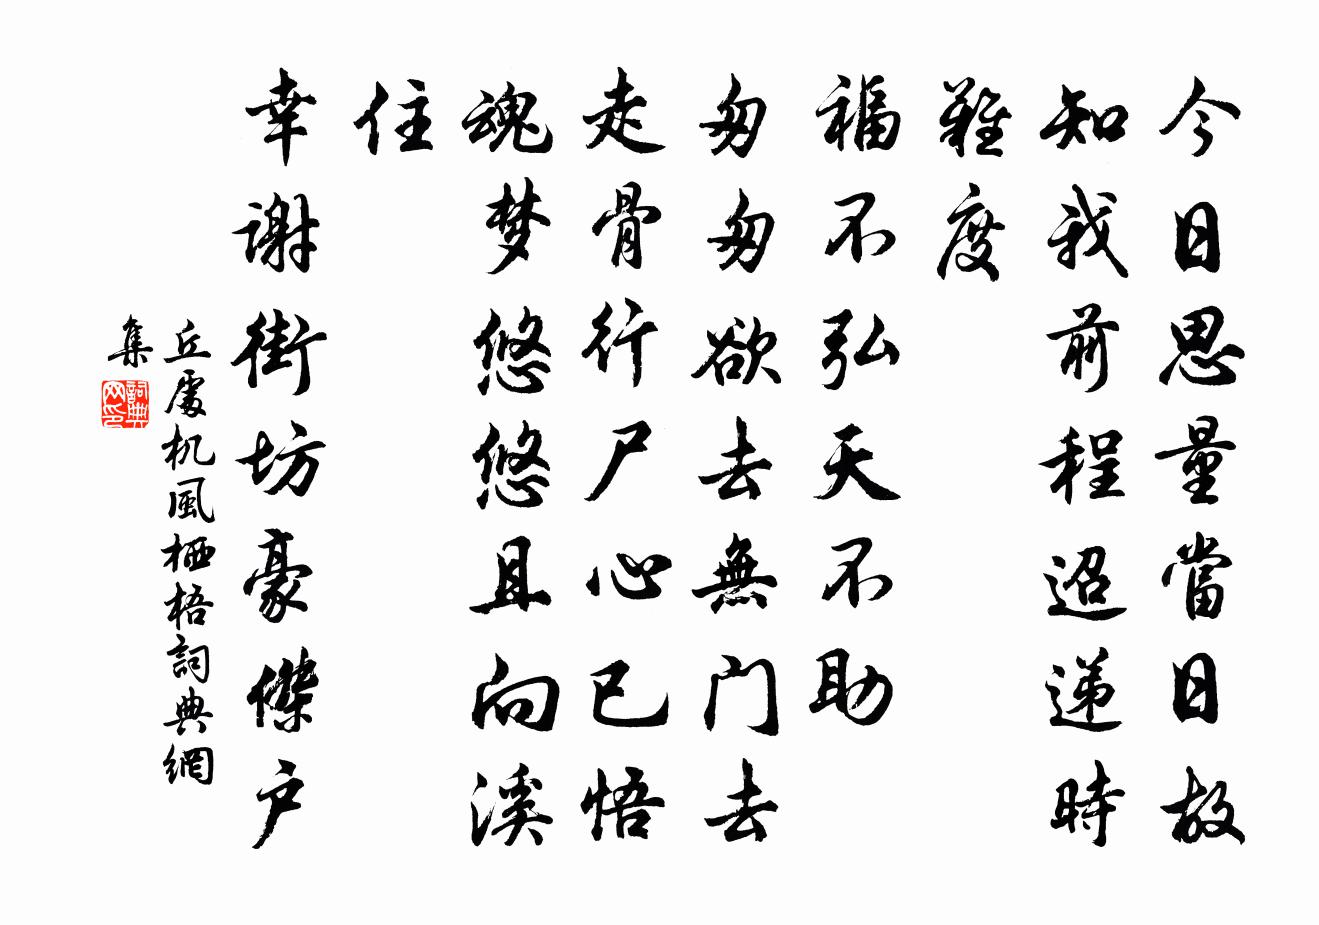 今日思量當日故
知我前程迢递時
難度
福不弘天不助
匆匆欲去無门去
走骨行尸心已悟
魂梦悠悠且向溪
住
幸谢街坊豪傑户
丘處机風栖梧詞典網
集
詞典网印